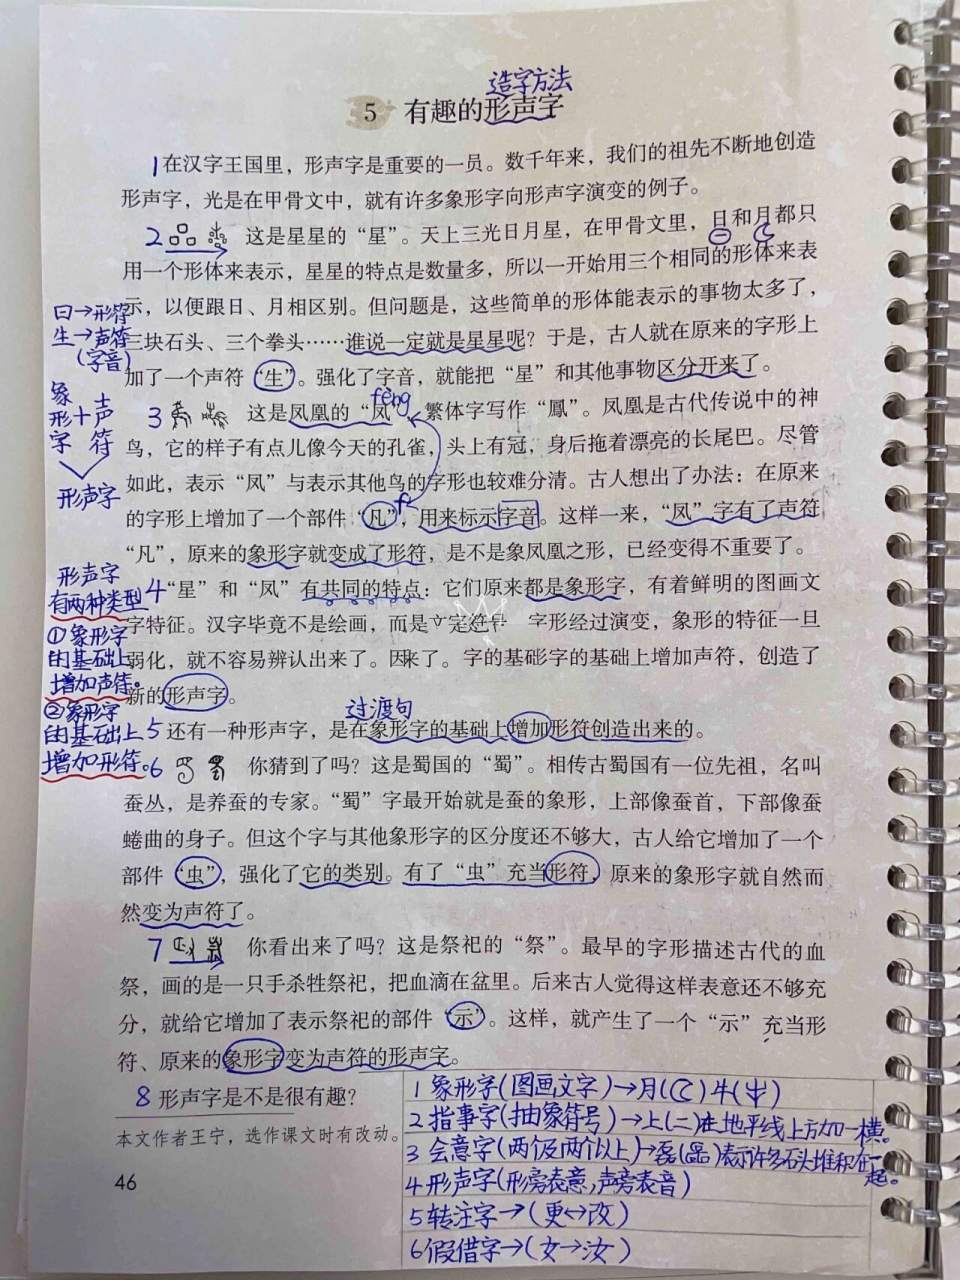 造字方法
5 有趣的形声字
1在汉字王国里，形声字是重要的一员。数千年来，我们的祖先不断地创造
形声字，光是在甲骨文中，就有许多象形字向形声字演变的例子。
2 这是星星的“星”。天上三光日月星，在甲骨文里，日和月都只
用一个形体来表示，星星的特点是数量多，所以一开始用三个相同的形体来表
示，以便跟日、月相区别。但问题是，这些简单的形体能表示的事物太多了，
三块石头、三个拳头……谁说一定就是星星呢？于是，古人就在原来的字形上
加了一个声符“生”。强化了字音，就能把“星”和其他事物区分开来了。
日→形符
生→声符
（字音）
fèng
3 这是凤凰的“凤”，繁体字写作“鳳”。凤凰是古代传说中的神
鸟，它的样子有点儿像今天的孔雀，头上有冠，身后拖着漂亮的长尾巴。尽管
如此，表示“凤”与表示其他鸟的字形也较难分清。古人想出了办法：在原来
的字形上增加了一个部件“凡”，用来标示字音。这样一来，“凤”字有了声符
“凡”，原来的象形字就变成了形符，是不是象凤凰之形，已经变得不重要了。
象形字+声符
形声字
4“星”和“凤”有共同的特点：它们原来都是象形字，有着鲜明的图画文
字特征。汉字毕竟不是绘画，而是 字形经过演变，象形的特征一旦
弱化，就不容易辨认出来了。因来了。字的基础字的基础上增加声符，创造了
新的形声字。
形声字
有两种类型
①象形字
的基础上
增加声符。
②象形字
的基础上
增加形符。
过渡句
5 还有一种形声字，是在象形字的基础上增加形符创造出来的。
6 你猜到了吗？这是蜀国的“蜀”。相传古蜀国有一位先祖，名叫
蚕丛，是养蚕的专家。“蜀”字最开始就是蚕的象形，上部像蚕首，下部像蚕
蜷曲的身子。但这个字与其他象形字的区分度还不够大，古人给它增加了一个
部件“虫”，强化了它的类别。有了“虫”充当形符，原来的象形字就自然而
然变为声符了。
7 你看出来了吗？这是祭祀的“祭”。最早的字形描述古代的血
祭，画的是一只手杀牲祭祀，把血滴在盆里。后来古人觉得这样表意还不够充
分，就给它增加了表示祭祀的部件“示”。这样，就产生了一个“示”充当形
符、原来的象形字变为声符的形声字。
8 形声字是不是很有趣？
本文作者王宁，选作课文时有改动。
46
1 象形字（图画文字）→月（）牛（）
2 指事字（抽象符号）→上（二）在地平线上方加一横。
3 会意字（两个及两个以上）→磊（）表示许多石头堆积在一起。
4 形声字（形旁表意，声旁表音）
5 转注字→（更↔改）
6 假借字→（女→汝）